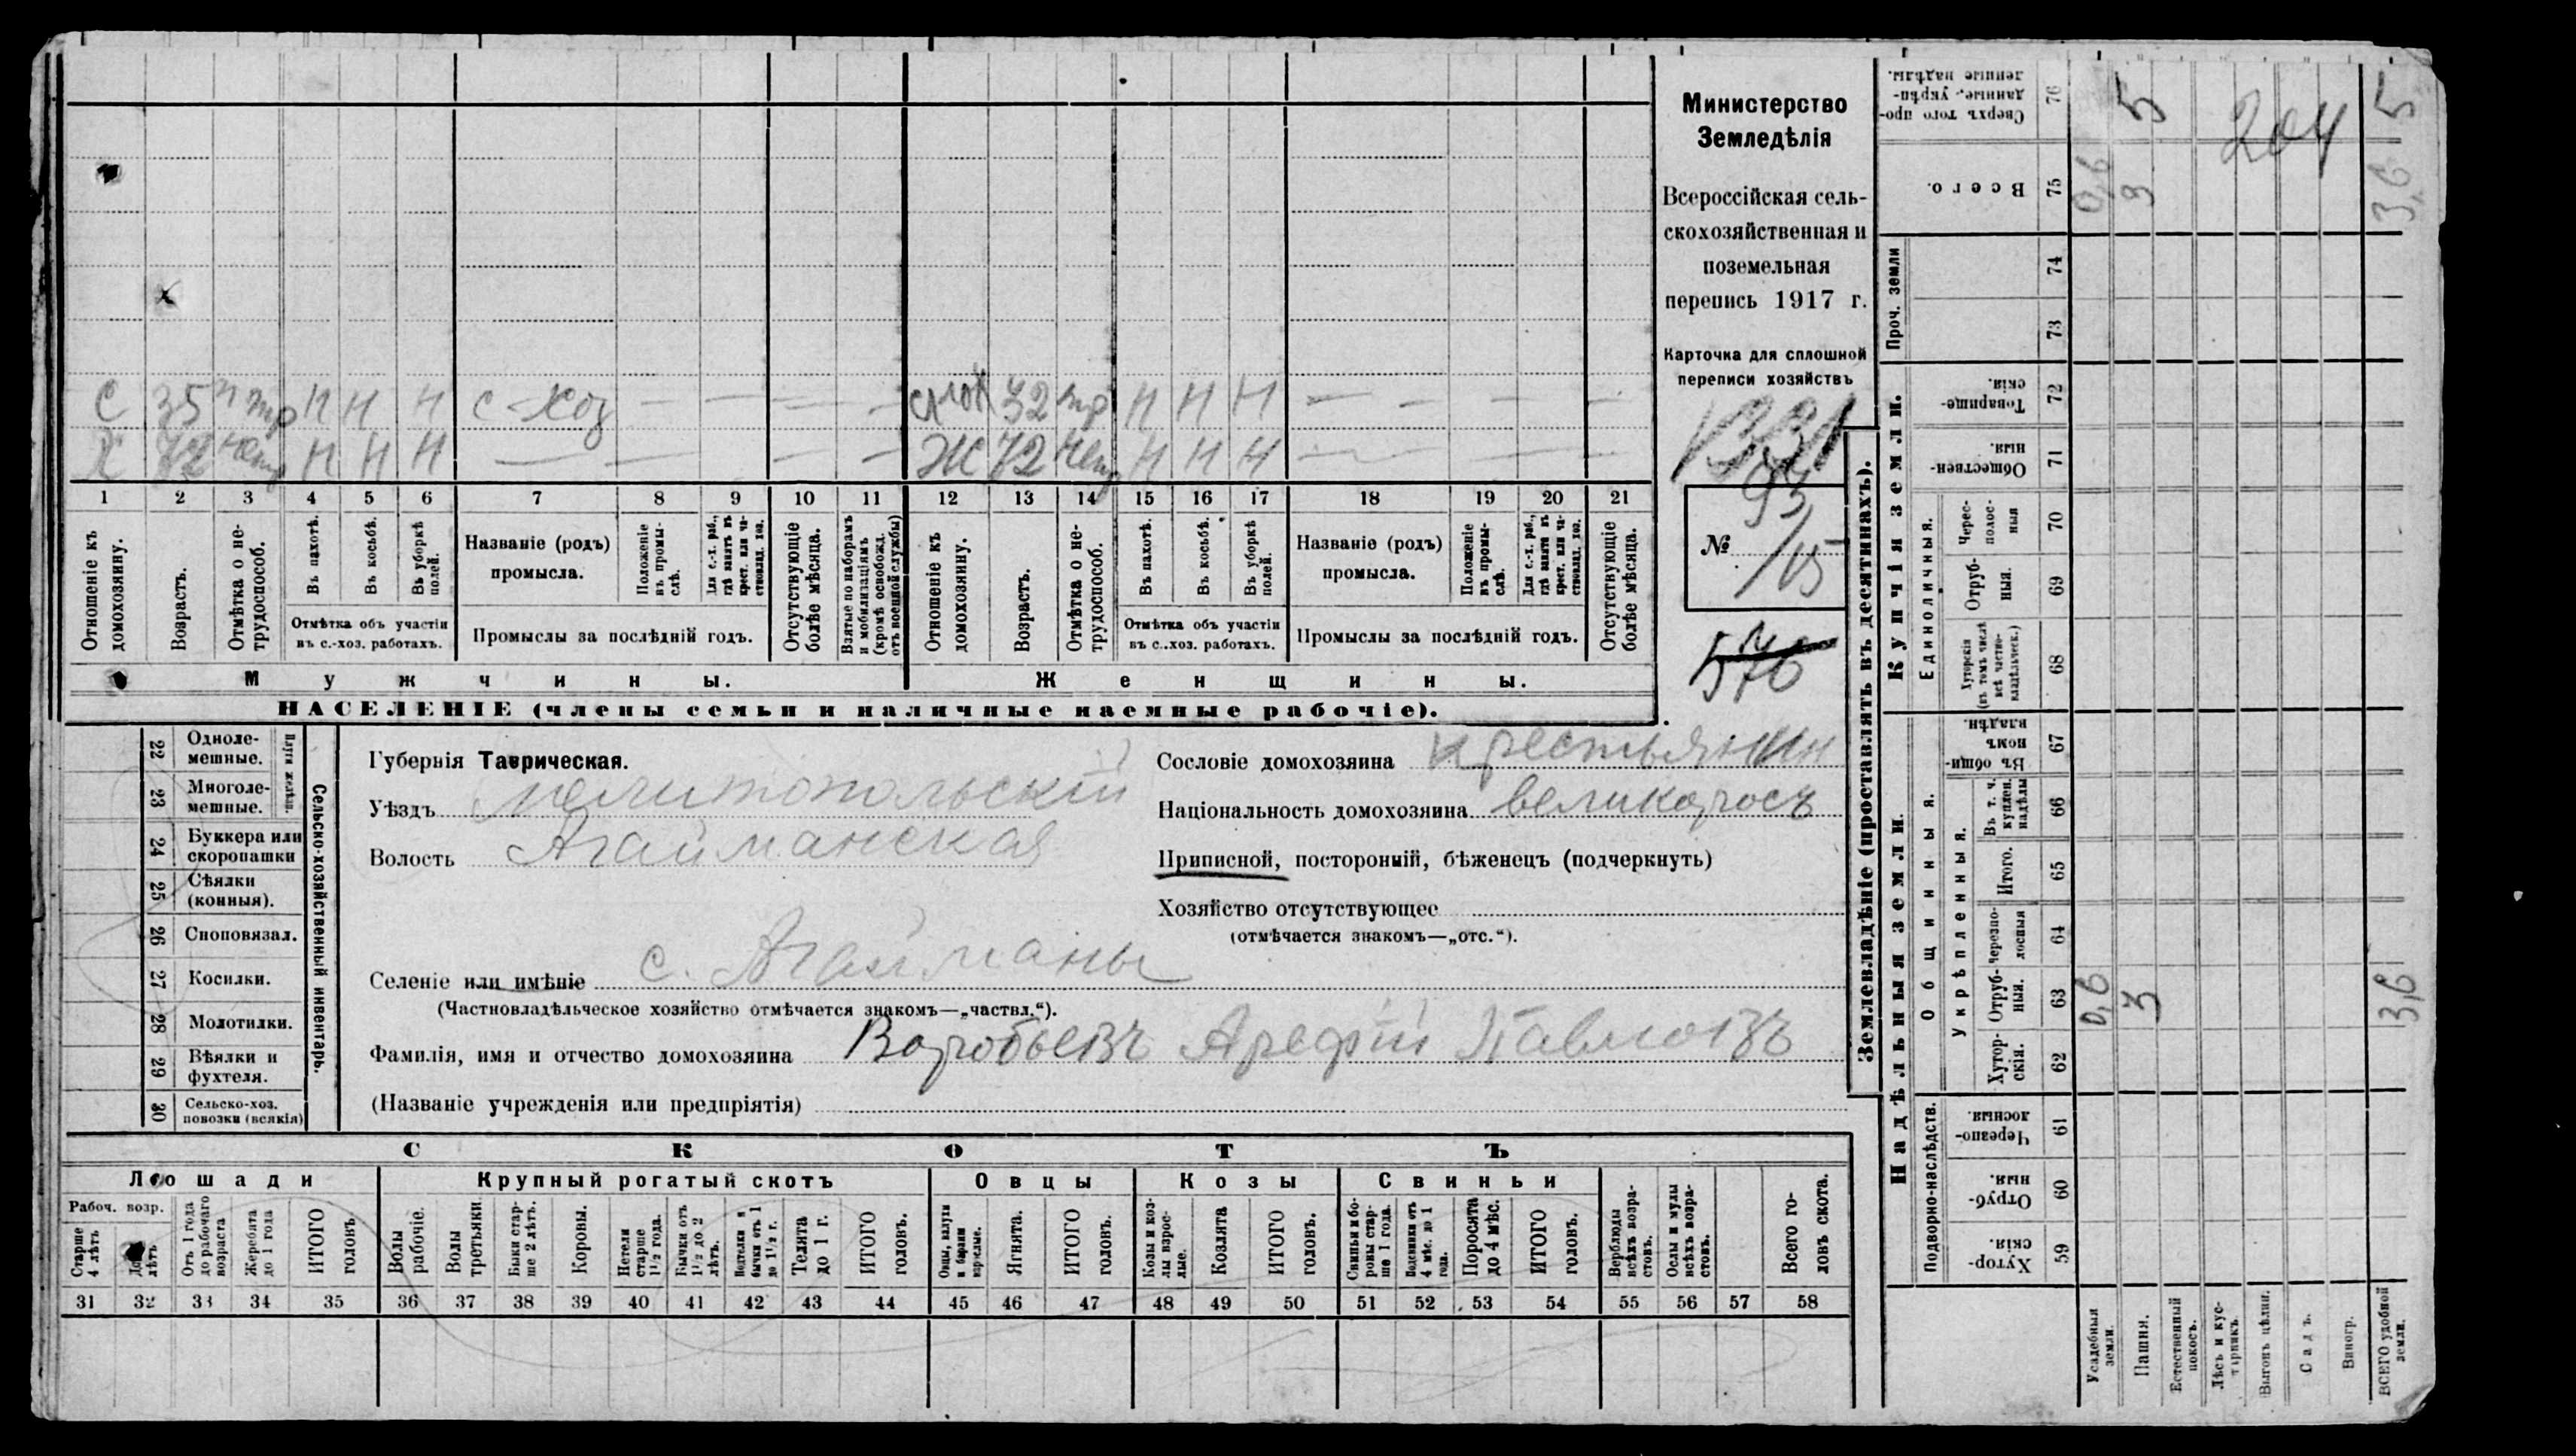 С 35 н тр н н н с-хоз — — — — сном 32 тр н н н — — — —
Х 72 нетр н н н — — — — Ж 72 нетр н н н — — — —
1 2 3 4 5 6 7 8 9 10 11 12 13 14 15 16 17 18 19 20 21
Отношеніе къ домохозяину.
Возрастъ.
Отмѣтка о не-трудоспособ.
Въ пахотѣ.
Въ косьбѣ.
Въ уборкѣ полей.
Отмѣтка объ участіи
въ с.-хоз. работахъ.
Названіе (родъ)
промысла.
Положеніе въ промы-слѣ.
Для с.-х. раб., гдѣ занятъ въ крест. или ча-ствовлад. хоз.
Промыслы за послѣдній годъ.
Отсутствующіе болѣе мѣсяца.
Взятые по наборамъ и мобилизаціямъ (кромѣ освобожд. отъ военной службы)
Отношеніе къ домохозяину.
Возрастъ.
Отмѣтка о не-трудоспособ.
Въ пахотѣ.
Въ косьбѣ.
Въ уборкѣ полей.
Отмѣтка объ участіи
въ с..хоз. работахъ.
Названіе (родъ)
промысла.
Положеніе въ промы-слѣ.
Для с.-х. раб., гдѣ занята въ крест. или ча-ствовлад. хоз.
Промыслы за послѣдній годъ.
Отсутствующіе болѣе мѣсяца.
Мужчины.
Женщины.
НАСЕЛЕНІЕ (члены семьи и наличные наемные рабочіе).
Министерство
Земледѣлія
Всероссійская сель-
скохозяйственная и
поземельная
перепись 1917 г.
Карточка для сплошной
переписи хозяйствъ
1331
№ 93/15
576
22 Одноле-мешные.
23 Многоле-мешные.
Плуги желѣзн.
24 Буккера или скоропашки
25 Сѣялки (конныя).
26 Сноповязал.
27 Косилки.
28 Молотилки.
29 Вѣялки и фухтеля.
30 Сельско-хоз. повозки (всякія)
Сельско-хозяйственный инвентарь.
Губернія Таврическая.
Уѣздъ Мелитопольскій
Волость Агайманская
Селеніе или имѣніе с. Агайманы
(Частновладѣльческое хозяйство отмѣчается знакомъ—„частвл.“).
Фамилія, имя и отчество домохозяина Воробьевъ Арефій Павловъ
(Названіе учрежденія или предпріятія)
Сословіе домохозяина крестьянин
Національность домохозяина великоросъ
Приписной, посторонній, бѣженецъ (подчеркнуть)
Хозяйство отсутствующее
(отмѣчается знакомъ—„отс.“).
СКОТЪ
Лошади
Крупный рогатый скотъ
Овцы
Козы
Свиньи
Рабоч. возр.
Старше 4 лѣтъ
До лѣтъ
Отъ 1 года до рабочаго возраста
Жеребята до 1 года
ИТОГО головъ
Волы рабочіе.
Волы третьяки.
Быки стар-ше 2 лѣтъ.
Коровы.
Нетели старше 1½ года.
Бычки отъ 1½ до 2 лѣтъ.
Подтелки и бычки отъ 1 до 1½ г.
Телята до 1 г.
ИТОГО головъ.
Овцы, валухи и бараны взрослые.
Ягнята.
ИТОГО головъ.
Козы и коз-лы взрос-лые.
Козлята
ИТОГО головъ.
Свиньи и бо-ровы стар-ше 1 года.
Подсвинки отъ 4 мѣс. до 1 года.
Поросята до 4 мѣс.
ИТОГО головъ.
Верблюды всѣхъ возра-стовъ.
Ослы и мулы всѣхъ возра-стовъ.
Всего го-ловъ скота.
31 32 33 34 35 36 37 38 39 40 41 42 43 44 45 46 47 48 49 50 51 52 53 54 55 56 57 58
Землевладѣніе (проставлять въ десятинахъ).
Купчія земли.
Надѣльныя земли.
Проч. земли
Единоличныя.
Общинныя.
Укрѣпленныя.
Подворно-наслѣдств.
Сверхъ того про-данные, укрѣп-ленные надѣлы. 76 5 204 5
Всего. 75 0,6 3 3,6
74
73
Товарище-скія. 72
Обществен-ныя. 71
Черес-полос-ныя 70
Отруб-ныя. 69
Хуторскія (въ томъ числѣ всѣ частно-владѣльческ.) 68
Въ общин-номъ владѣн. 67
Въ т. ч. куплен. надѣлы 66
Итого. 65
Черезпо-лосныя 64
Отруб-ныя. 63 0,6 3 3,6
Хутор-скія. 62
Черезпо-лосныя. 61
Отруб-ныя. 60
Хутор-скія. 59
Усадебныя земли.
Пашня.
Естественный покосъ.
Лѣсъ и кус-тарникъ.
Выгонъ цѣлин.
Садъ.
Виногр.
ВСЕГО удобной земли.